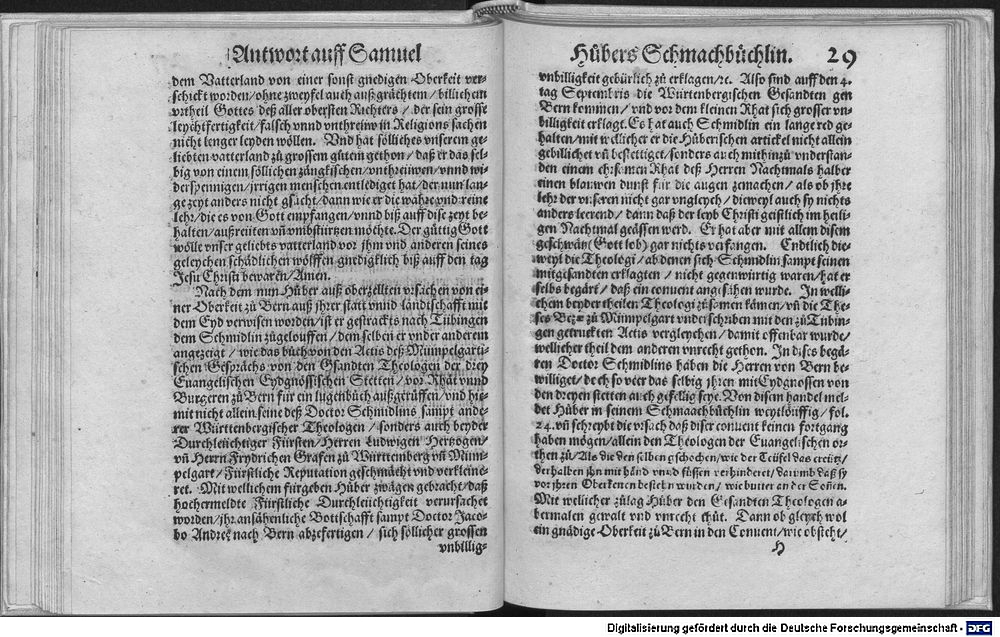 Antwort auff Samuel
dem Vatterland von einer sonst gnedigen Oberkeit ver-
schickt worden/ohne zweyfel auch auß grächtem/billichem
vrtheil Gottes deß aller obersten Richters/ der sein grosse
leychtfertigkeit/falsch vnnd vnthreüw in Religions sachen
nicht lenger leyden wöllen. Vnd hat söllliches vnserem ge-
liebten vatterland zů grossem gůtem gethon/ daß er das sel-
big von einem söllichen zängkischen/vnthreüwen/vnnd wi-
derspennigen/jrrigen menschen entlediget hat/der nun lan-
ge zeyt anders nicht gsůcht/dann wie er die wahre vnd reine
lehr/die es von Gott empfangen/vnnd biß auff dise zeyt be-
halten/außreüten vñ vmbstürtzen möchte. Der gůttig Gott
wölle vnser geliebts vatterland vor jhm vnd anderen seines
geleychen schädlichen wölffen gnedigklich biß auff den tag
Jesu Christi bewaren/Amen.
Nach dem nun Hůber auß oberzellten vrsachen von ei-
ner Oberkeit zů Bern auß jhrer statt vnnd landtschafft mit
dem Eyd verwisen worden/ist er gestrackts nach Tübingen
dem Schmidlin zůgelouffen/dem selben er vnder anderem
angezeigt/ wie das bůch von den Actis deß Mümpelgarti-
schen Gesprächs von den Gsandten Theologen der drey
Euangelischen Eydgnössischen Stetten/vor Rhät vnnd
Burgeren zů Bern für ein lugenbůch außgerůffen/vnd hie-
mit nicht allein seine deß Doctor Schmidlins sampt ande-
rer Württenbergischer Theologen/ sonders auch beyder
Durchleüchtiger Fürsten/Herren Ludwigen Hertzogen/
vñ Herrn Frydrichen Grafen zů Württemberg vñ Müm-
pelgart/Fürstliche Reputation geschmächt vnd verkleine-
ret. Mit wellichem fürgeben Hůber zwägen gebracht/daß
hochermeldte Fürstliche Durchleüchtigkeit verursachet
worden/jhr ansähenliche Bottschafft sampt Doctor Jaco-
bo Andreę nach Bern abzefertigen/ sich söllicher grossen
vnbillig-
Hůbers Schmachbüchlin. 29
vnbilligkeit gebürlich zů erklagen/ꝛc. Also sind auff den 4.
tag Septembris die Würtenbergischen Gesandten gen
Bern kommen/ vnd vor dem kleinen Rhat sich grosser vn-
billigkeit erklagt. Es hat auch Schmidlin ein lange red ge-
halten/mit wellicher er die Hůberischen artickel nicht allein
gebillichet vñ bestettiget/sonders auch mithinzů vnderstan-
den einem ehrsamen Rhat deß Herren Nachtmals halber
einen blauwen dunst für die augen zemachen/ als ob jhre
lehr der vnseren nicht gar vngleych/ dieweyl auch sy nichts
anders leerend/ dann daß der leyb Christi geistlich im heili-
gen Nachtmal geässen werd. Er hat aber mit allem disem
geschwätz (Gott lob) gar nichts verfangen. Endtlich die-
weyl die Theologi/ab denen sich Schmidlin sampt seinen
mitgesandten erklagten/ nicht gegenwirtig waren/hat er
selbs begärt/ daß ein conuent angesähen wurde. In welli-
chem beyder theilen Theologi zůsamen kämen/vñ die The-
ses Bezę zů Mümpelgart vnderschriben mit den zů Tübin-
gen getruckten Actis vergleychen/ damit offenbar wurde/
wellicher theil dem anderen vnrecht gethon. In dises begä-
ren Doctor Schmidlins haben die Herren von Bern be-
williget/doch so veer das selbig jhren mit Eydgnossen von
den dreyen stetten auch gefellig seye. Von disem handel mel-
det Hůber in seinem Schmaachbüchlin weytlöuffig/ fol.
24. vñ schreybt die vrsach daß diser conuent keinen fortgang
haben mögen/allein den Theologen der Euangelischen or-
then zů/Als die den selben gschochen/wie der Teüfel das creütz/
derhalben jhn mit händ vnnd füssen verhinderet/ darumb daß sy
vor jhren Oberkeiten bestehn wurden/ wie butter an der Soñen.
Mit wellicher zůlag Hůber den Gesandten Theologen a-
bermalen gewalt vnd vnrecht thůt. Dann ob gleych wol
ein gnädige Oberkeit zů Bern in den Conuent/wie obsteht/
H
Digitalisierung gefördert durch die Deutsche Forschungsgemeinschaft - DFG